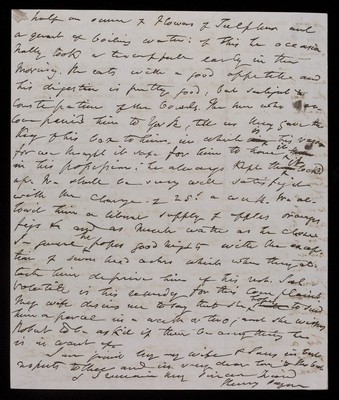 half an ounce of Flowers of Sulphur and
a quart of boiling water: of this he occasion
nally took a teacupful early in the
Morning. He eats with a good appetite and
his digestion is pretty good, but subject to
Constipation of the bowels. The Men who
accompanied him to York, tell us they gave the
Key of his box to him, in which is his
for we thought it safe for him to have it
in his possession; he always kept the box
We shall be very well satisfied
with the charge of 25s. a week. We al-
lowed him a liberal supply of apples oranges
figs &c and as much water as he chose
In general he passes good nights with the excep-
tion of some head aches which when they at-
tack him deprive him of his rest. Sal
volatile is his remedy for this complaint.
My wife desires me to say that she hopes to send
him a parcel in a week or two, and she wishes
Robert to be asked if there be any thing he
is in want of.
I am joined by my wife & Sons in best
respects to thee and
I remain thy Sincere friend
Henry